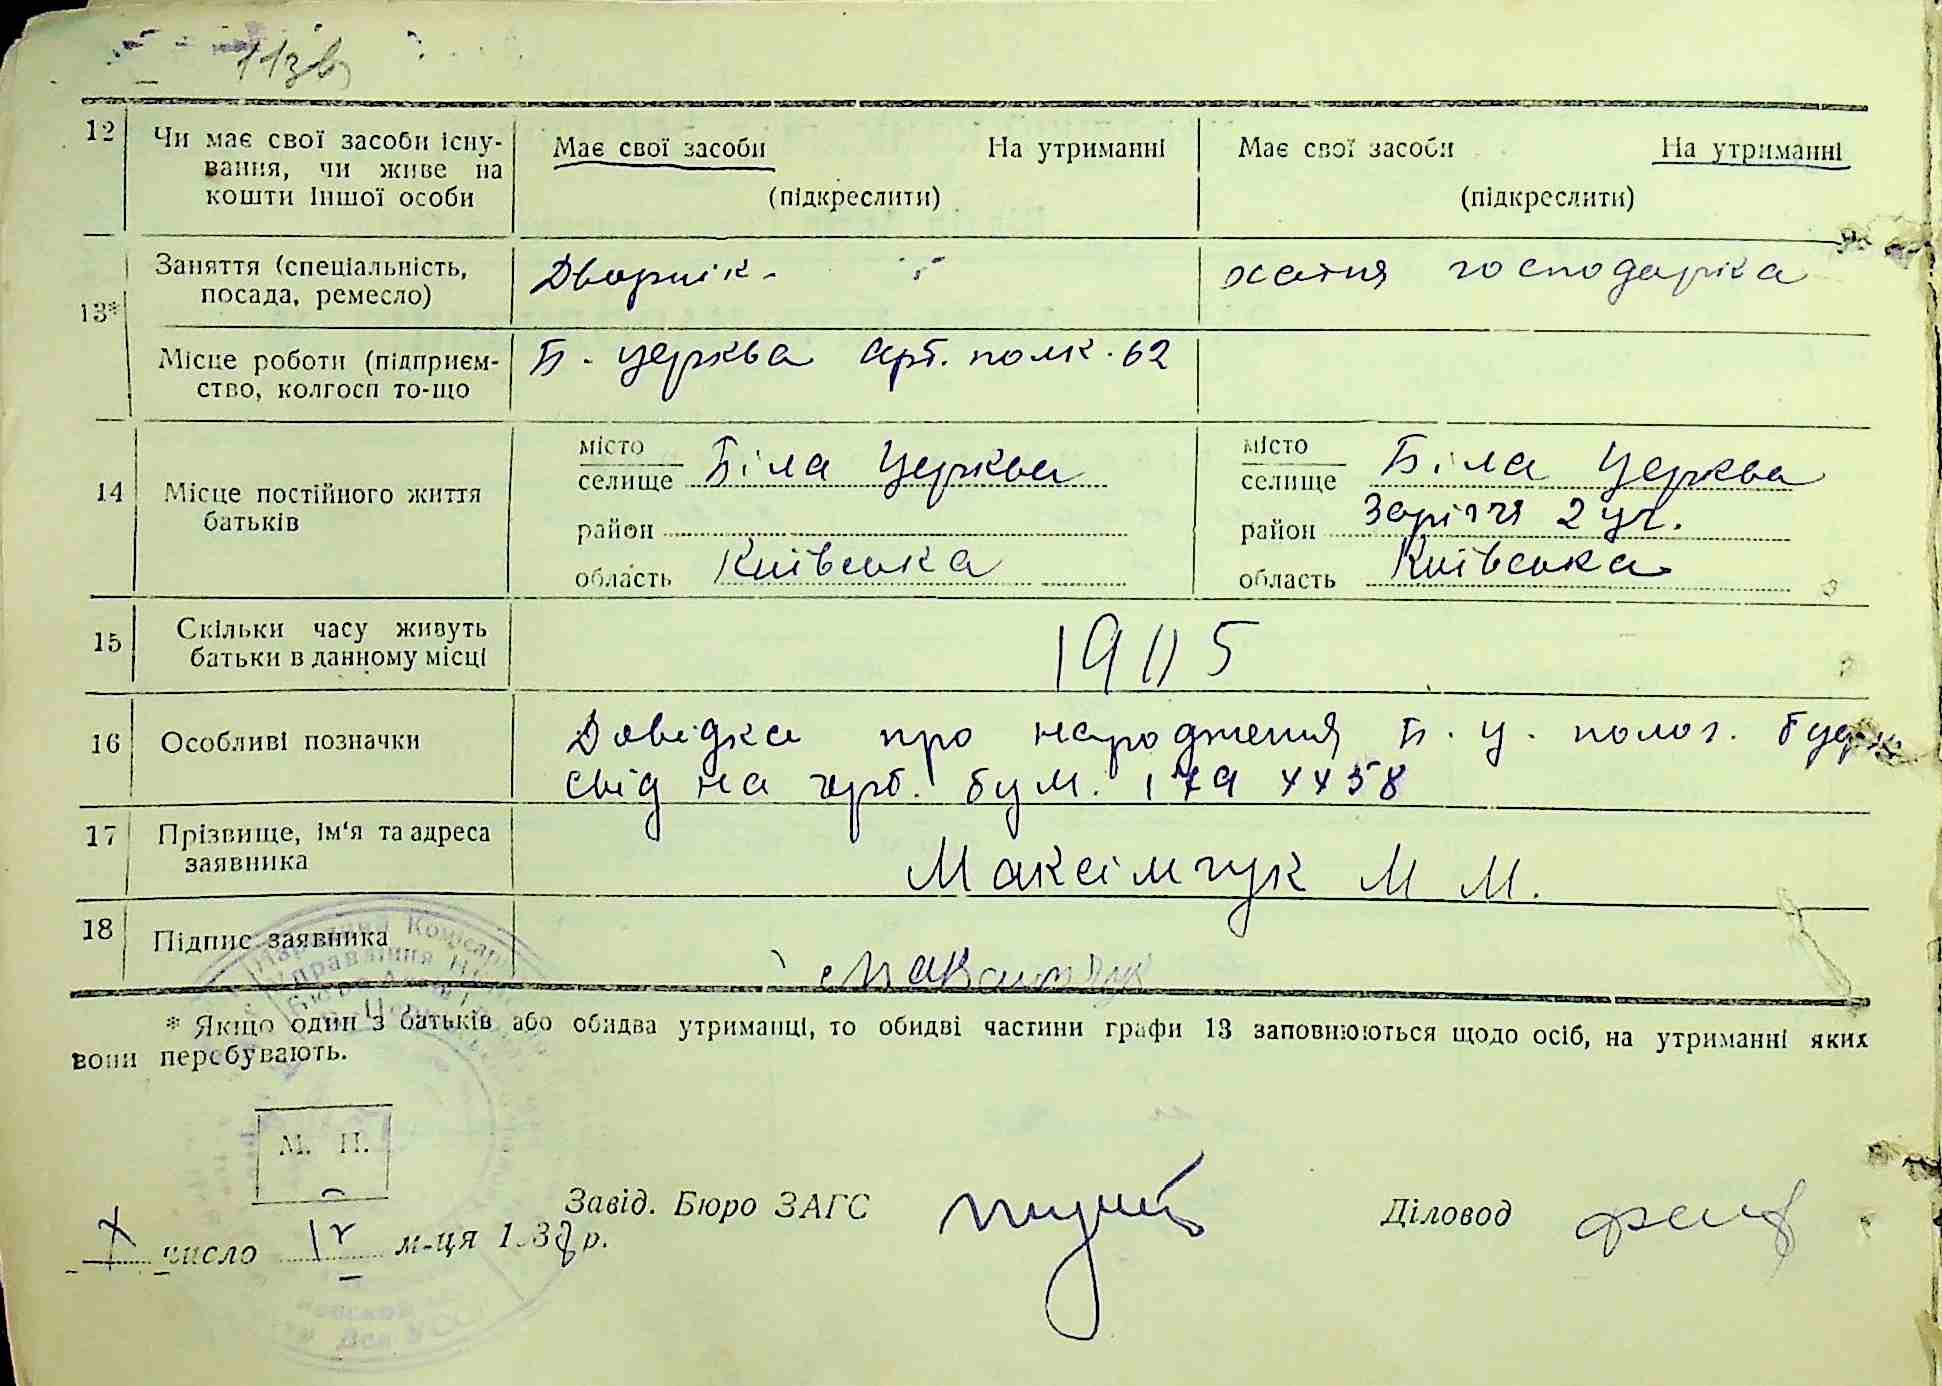 113в
12 Чи має свої засоби існу-
вання, чи живе на
кошти іншої особи
Має свої засоби На утриманні
(підкреслити)
Має свої засоби На утриманні
(підкреслити)
13*
Заняття (спеціальність,
посада, ремесло)
Дворнік-
хатня господарка
Місце роботи (підприєм-
ство, колгосп то-що
Б. церква арт. полк. 62
14 Місце постійного життя
батьків
місто
селище Біла Церква
район
область Київська
місто
селище Біла Церква
район Заріччя 2 уч.
область Київська
15 Скільки часу живуть
батьки в данному місці
1905
16 Особливі позначки
Довідка про народження Б. ц. полог. буд
свід на герб. бум.
17 Прізвище, ім'я та адреса
заявника
Максімчук М М.
18 Підпис заявника
* Якщо один з батьків або обидва утриманці, то обидві частини графи 13 заповнюються щодо осіб, на утриманні яких
вони перебувають.
М. П.
Завід. Бюро ЗАГС
Діловод
число м-ця 1938 р.